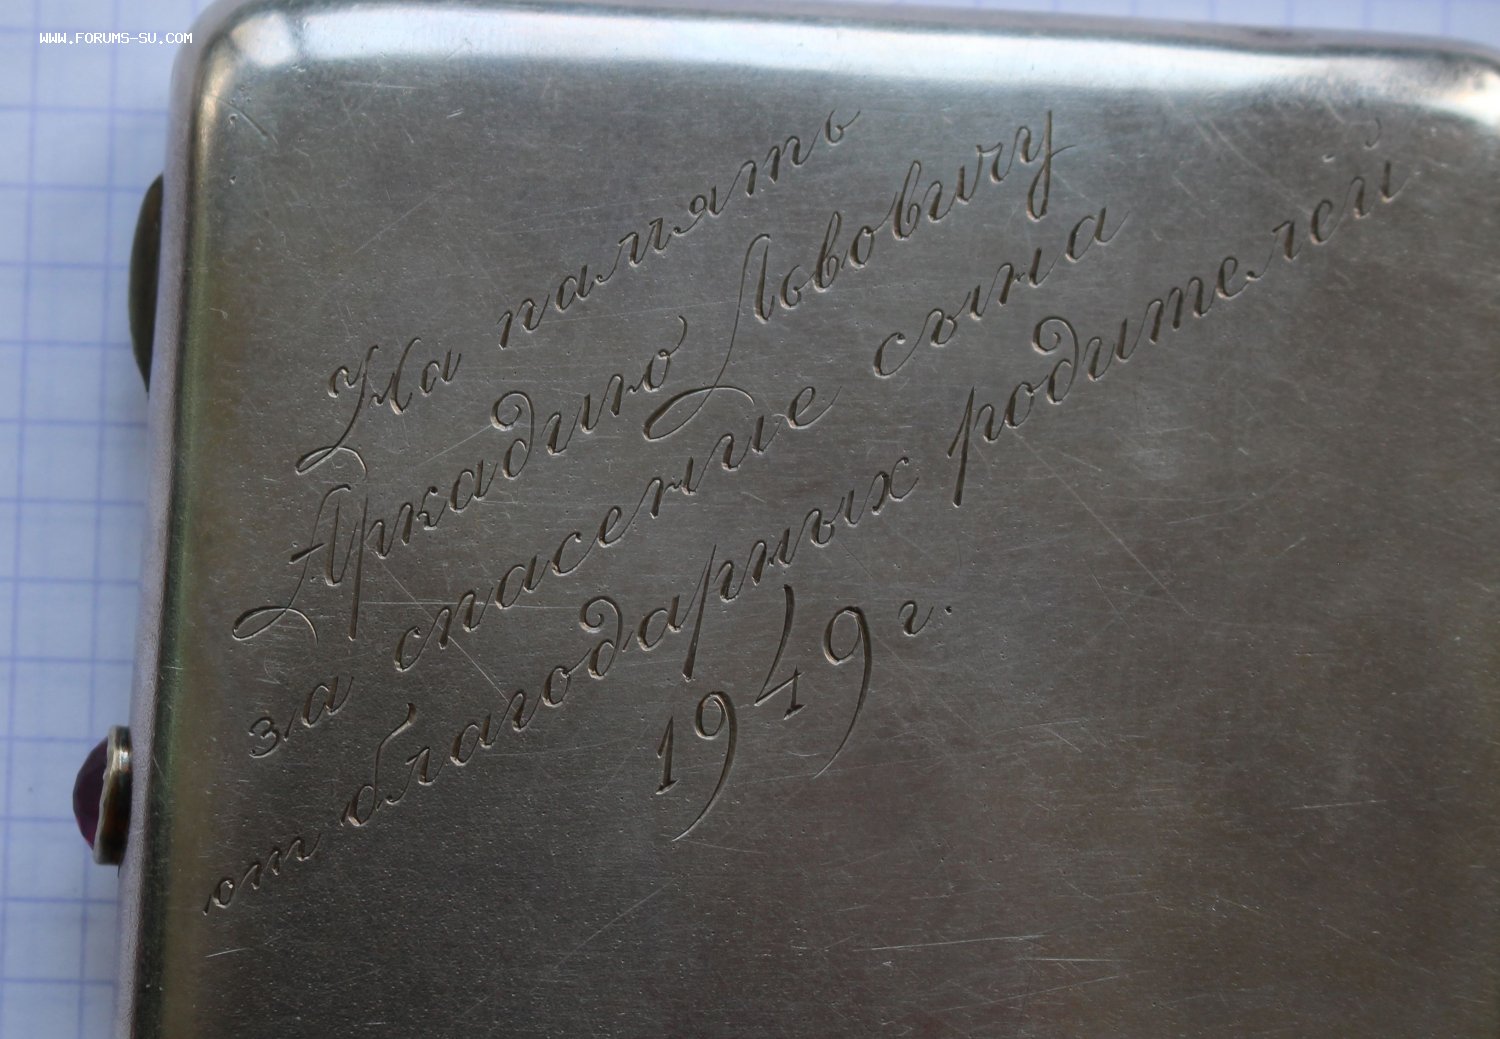 WWW.FORUMS-SU.COM
На память
Аркадию Львовичу
за спасение сына
от благодарных родителей
1949 г.